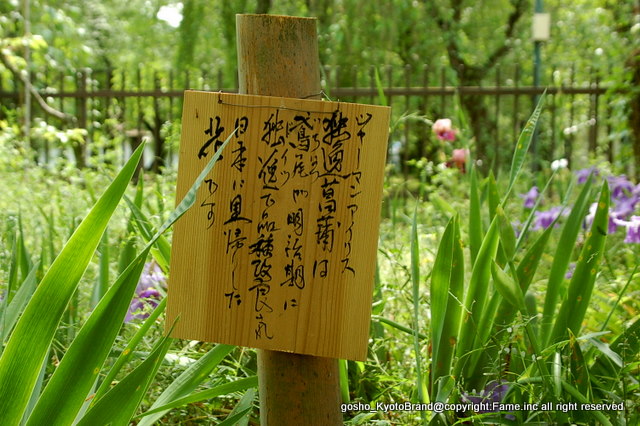 ジャーマンアイリス
独逸菖蒲は
鳶尾が明治期に
独逸で品種改良され
ドイツ
日本に里帰りした
花です
gosho_KyotoBrand@copyright:Fame.inc all right reserved